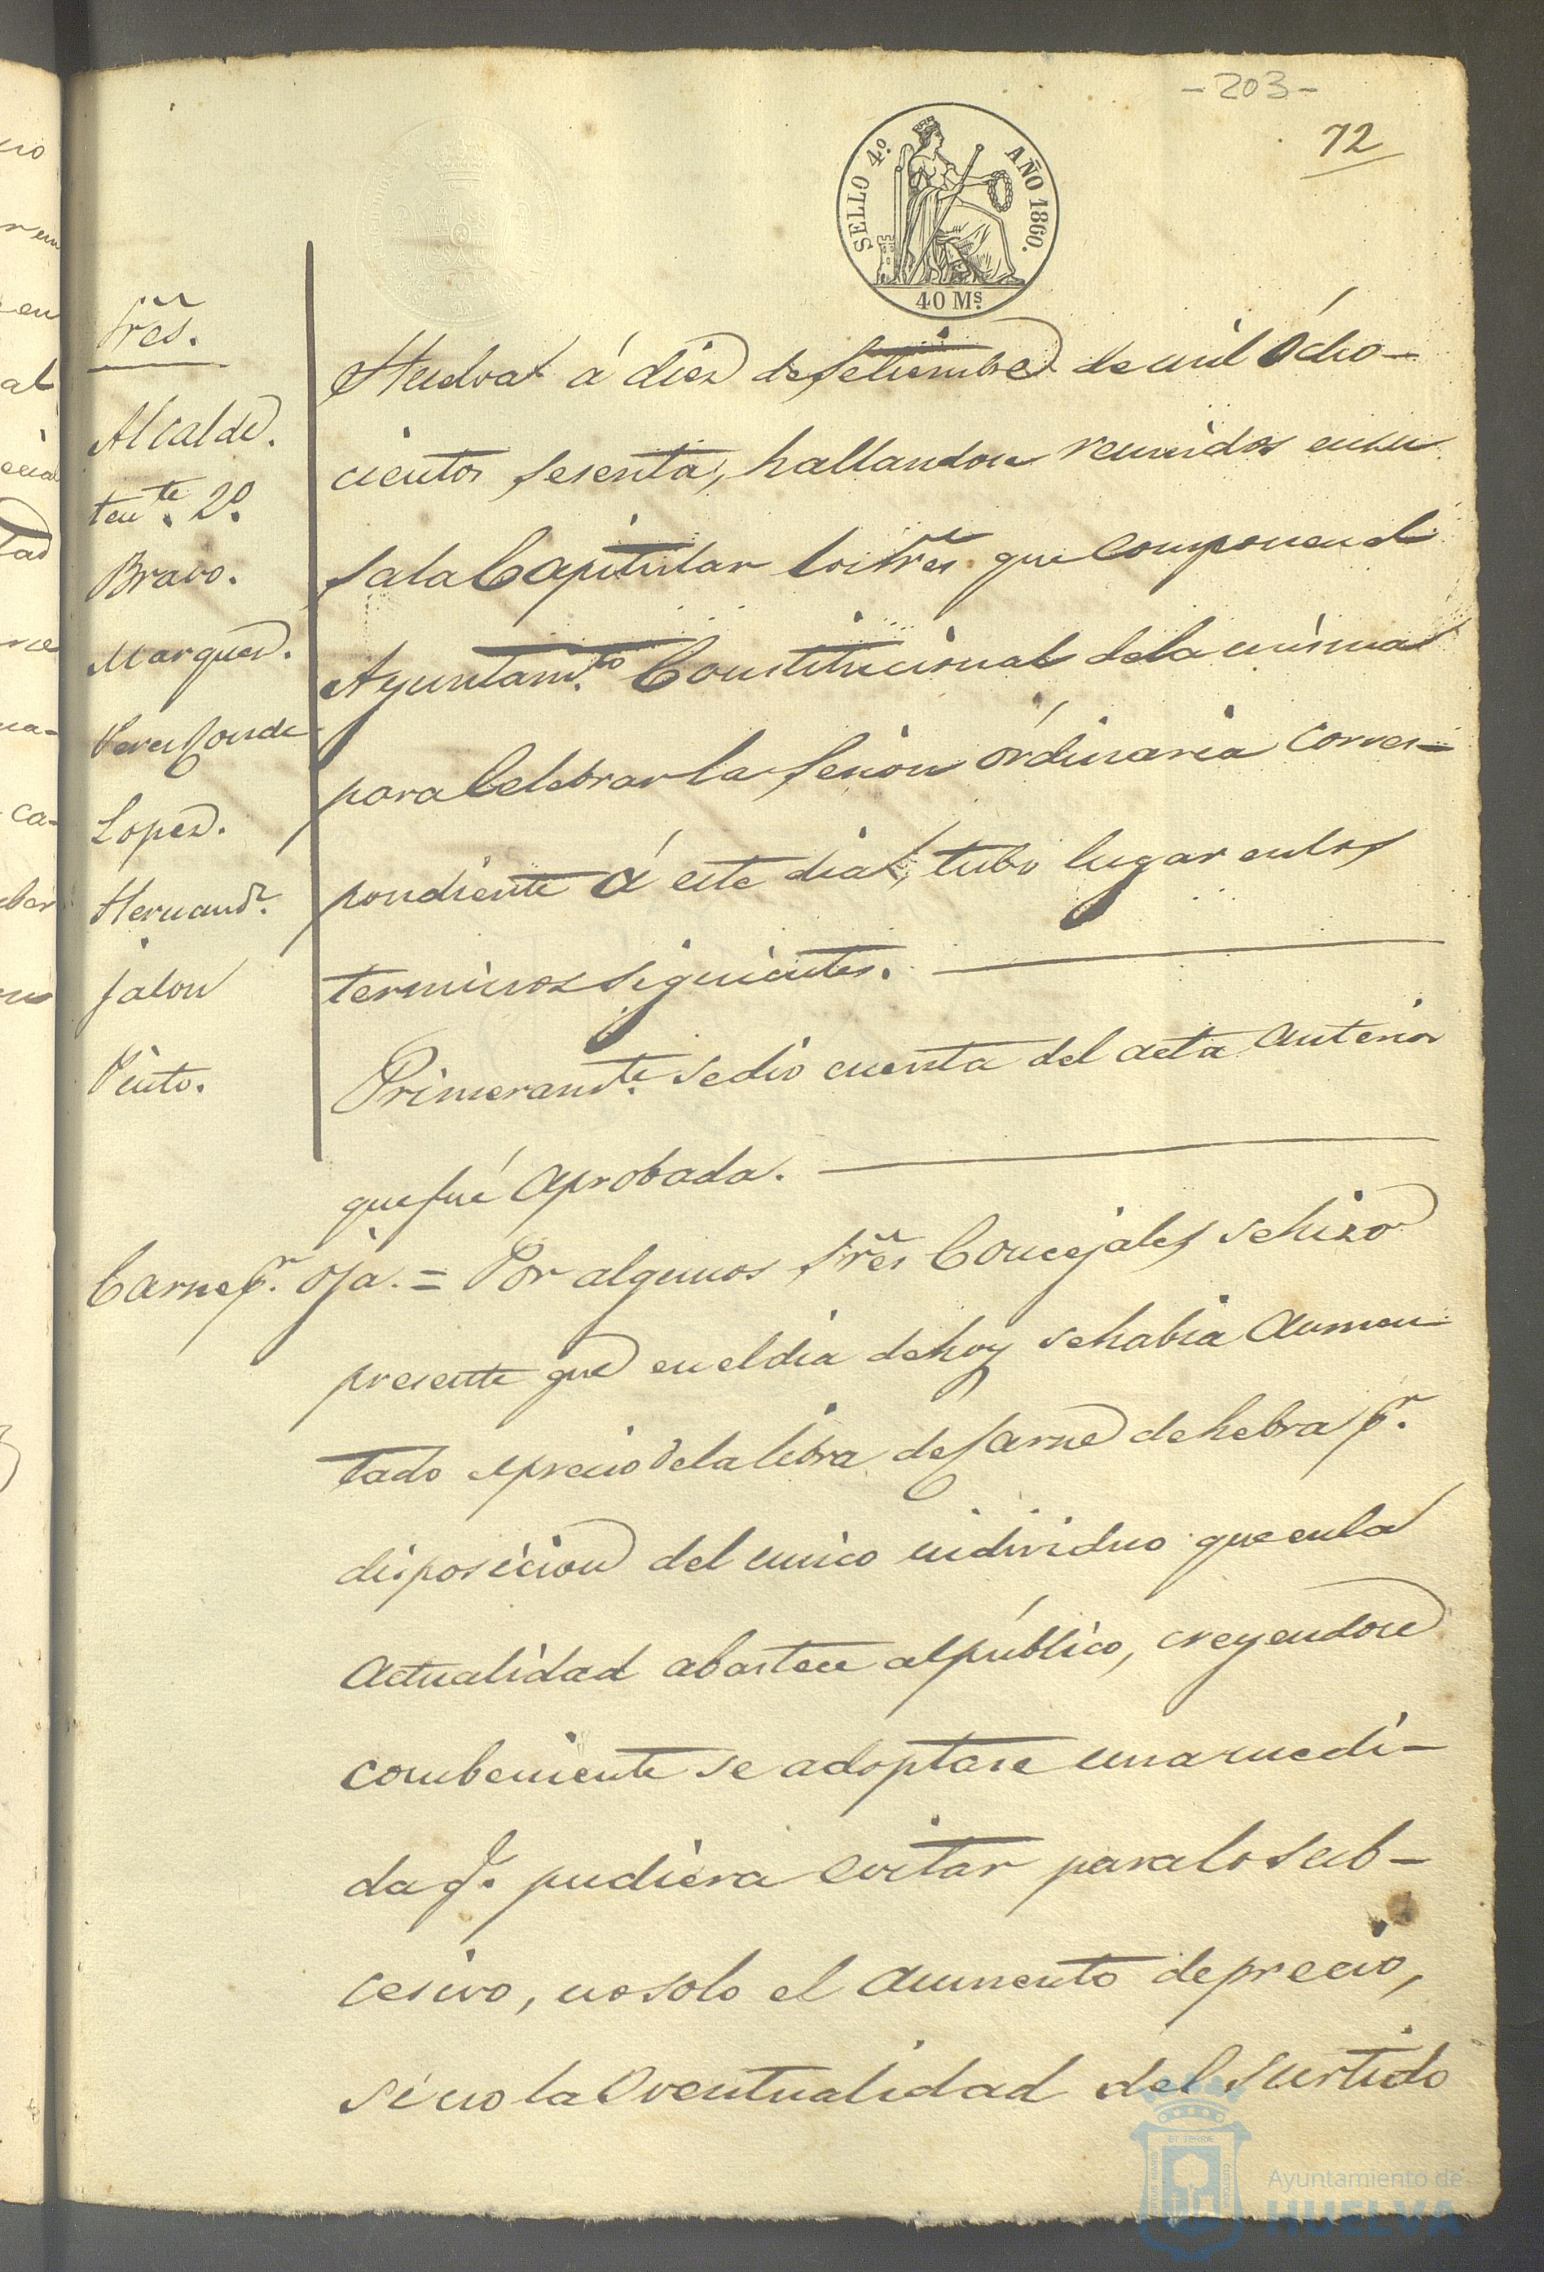 -203-
72
SELLO 4º. AÑO 1860.
40 Ms.
Sres.
Alcalde.
tente. 2º.
Bravo.
Marquez.
Perez Conde
Lopez.
Hernandz.
Jalon
Pinto.
Huelva á diez de Setiembre de mil ócho-
cientos sesenta, hallandose reunidos en su
sala Capitular los Sres. que componen el
Ayuntamto. Constitucional de la misma
para Celebrar la sesion órdinaria corres-
pondiente á este dia, tubo lugar en los
terminos siguientes.
Primeramte. se dio cuenta del acta anterior
que fué aprobada.
Carne pr. oja. = Por algunos Sres Concejales se hizo
presente que en el dia de hoy se habia aumen
tado el precio de la libra de Carne de hebra pr.
disposicion del unico individuo que en la
actualidad abastece al público, creyendose
combeniente se adoptase una medi-
da q. pudiera evitar para lo sub-
cesivo, no solo el aumento de precio,
sino la eventualidad del surtido
Ayuntamiento de
HUELVA